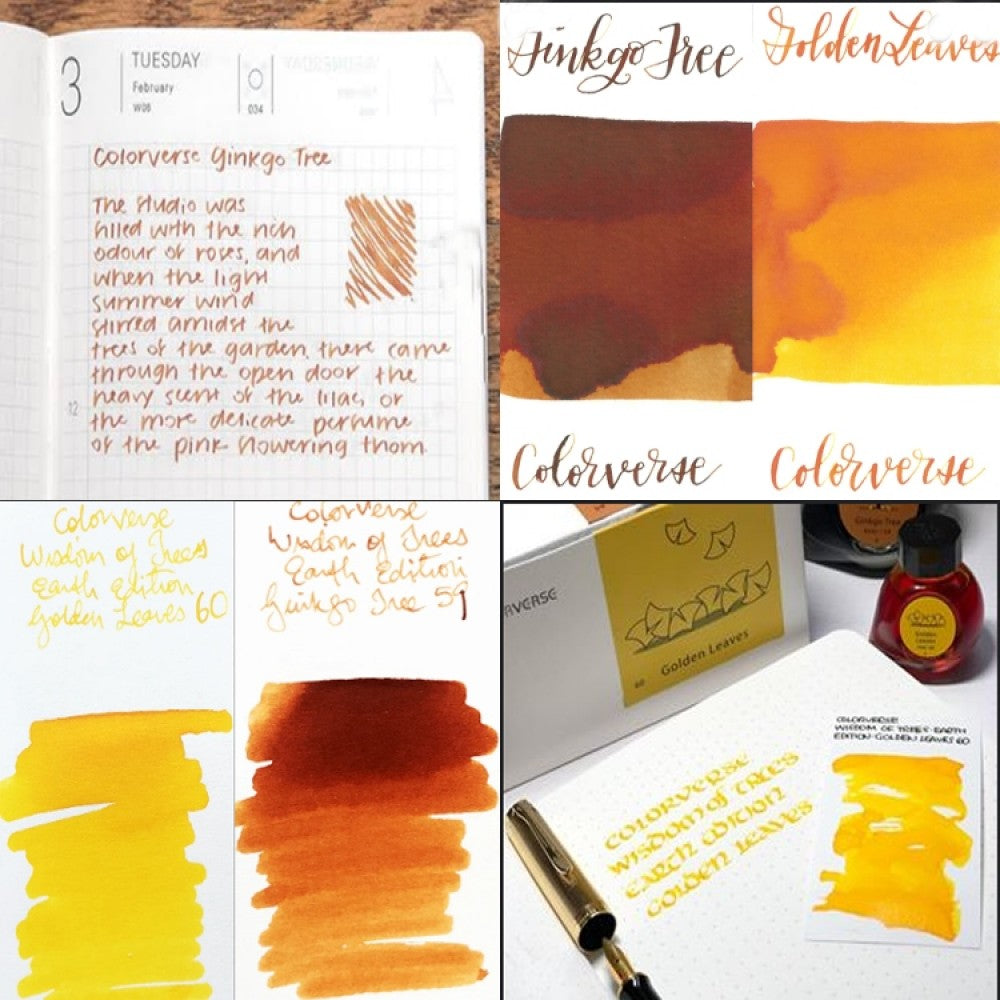 3
TUESDAY
February
W06
034
Colorverse Ginkgo Tree
The studio was
filled with the rich
odour of roses, and
when the light
summer wind
stirred amidst the
trees of the garden, there came
through the open door the
heavy scent of the lilac, or
the more delicate perfume
of the pink flowering thorn.
12
Ginkgo Tree
Golden Leaves
Colorverse
Colorverse
Colorverse
Wisdom of Trees
Earth Edition
Golden Leaves 60
Colorverse
Wisdom of Trees
Earth Edition
Ginkgo Tree 59
VERSE
60 Golden Leaves
Ginkgo Tree
Golden
Leaves
COLORVERSE
WISDOM OF TREES EARTH
EDITION GOLDEN LEAVES 60
COLORVERSE
WISDOM OF TREES
EARTH EDITION
GOLDEN LEAVES